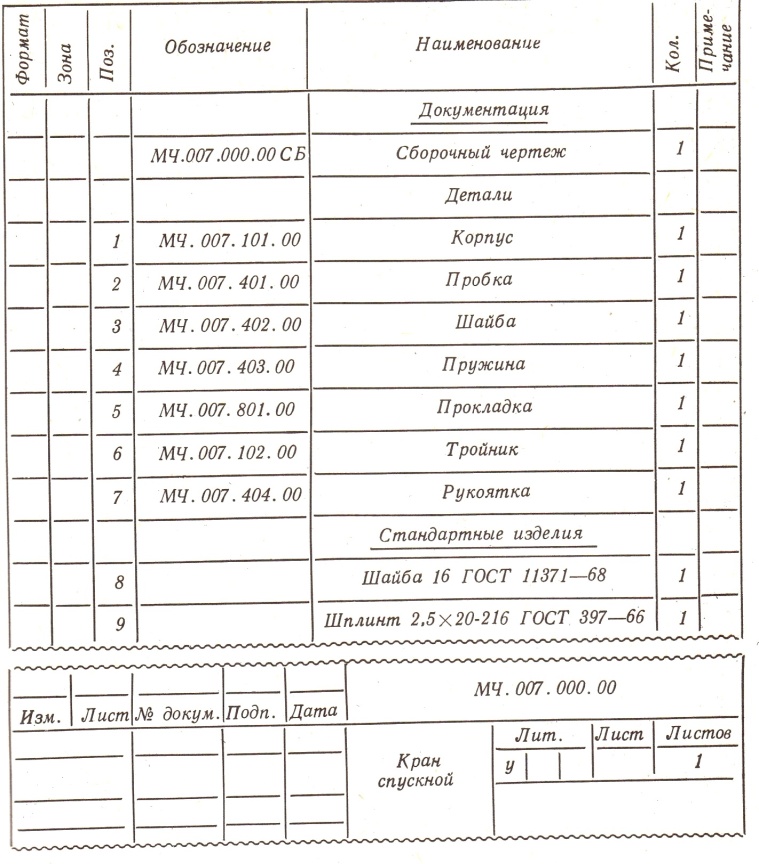 Формат Зона Поз. Обозначение Наименование Кол. Приме-
чание
Документация
МЧ.007.000.00 СБ Сборочный чертеж 1
Детали
1 МЧ.007.101.00 Корпус 1
2 МЧ.007.401.00 Пробка 1
3 МЧ.007.402.00 Шайба 1
4 МЧ.007.403.00 Пружина 1
5 МЧ.007.801.00 Прокладка 1
6 МЧ.007.102.00 Тройник 1
7 МЧ.007.404.00 Рукоятка 1
Стандартные изделия
8 Шайба 16 ГОСТ 11371—68 1
9 Шплинт 2,5×20-216 ГОСТ 397—66 1
МЧ.007.000.00
Изм. Лист № докум. Подп. Дата
Кран
спускной
Лит. Лист Листов
у 1